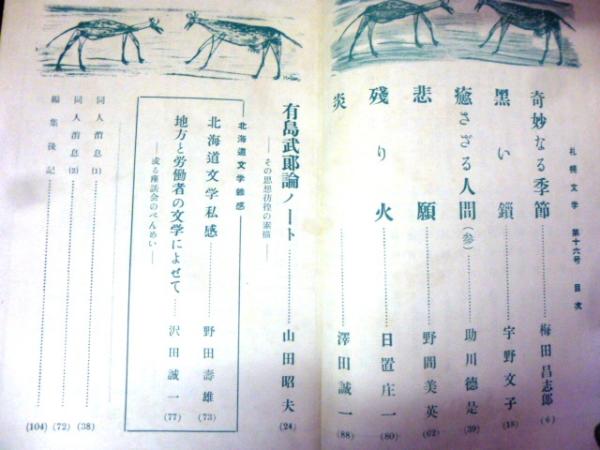 札幌文学 第十六号 目次
奇妙なる季節……梅田昌志郎(6)
黒い鎖……宇野文子(18)
癒さざる人間(参)……助川徳是(39)
悲願……野間美英(62)
残り火……日置庄一(80)
炎……澤田誠一(88)
有島武郎論ノート……山田昭夫(24)
——その思想彷徨の素描——
北海道文学雑感
北海道文学私感……野田壽雄(73)
地方と労働者の文学によせて……沢田誠一(77)
——或る座談会のべんめい——
同人消息(1)……(38)
同人消息(2)……(72)
編集後記……(104)